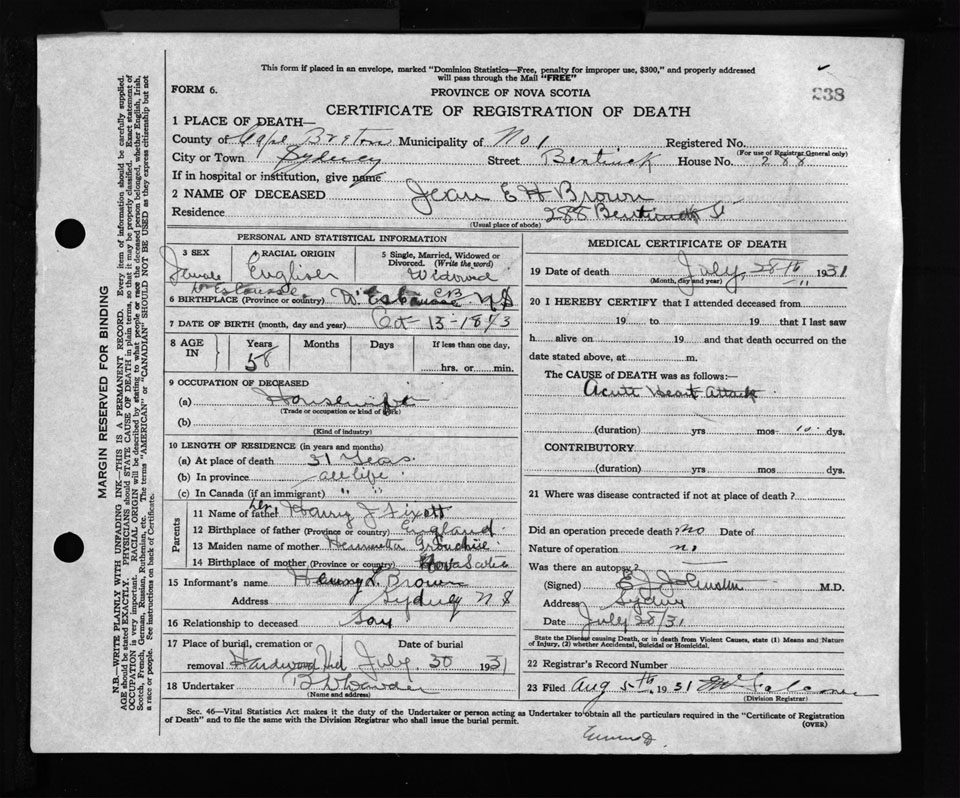 This form if placed in an envelope, marked "Dominion Statistics—Free, penalty for improper use, $300," and properly addressed
will pass through the Mail "FREE"
FORM 6.
PROVINCE OF NOVA SCOTIA
238
CERTIFICATE OF REGISTRATION OF DEATH
1 PLACE OF DEATH—
County of Cape Breton Municipality of No 1 Registered No.
(For use of Registrar General only)
City or Town Sydney Street Bentinck House No. 288
If in hospital or institution, give name
2 NAME OF DECEASED Jean E H Brown
Residence 288 Bentinck St
(Usual place of abode)
PERSONAL AND STATISTICAL INFORMATION
3 SEX 4 RACIAL ORIGIN 5 Single, Married, Widowed or Divorced. (Write the word)
Female English Widowed
6 BIRTHPLACE (Province or country) D'Escousse CB NS
7 DATE OF BIRTH (month, day and year) Oct 13-1873
8 AGE IN Years Months Days If less than one day,
58 hrs. or min.
9 OCCUPATION OF DECEASED
(a) Housewife
(Trade or occupation or kind of work)
(b)
(Kind of industry)
10 LENGTH OF RESIDENCE (in years and months)
(a) At place of death 31 Years.
(b) In province all life
(c) In Canada (if an immigrant) " "
Parents
11 Name of father Harry J Fixott
12 Birthplace of father (Province or country) England
13 Maiden name of mother Henrietta
14 Birthplace of mother (Province or country) Nova Scotia
15 Informant's name Brown
Address Sydney N S
16 Relationship to deceased Son
17 Place of burial, cremation or removal Hardwood Hill Date of burial July 30 1931
18 Undertaker
(Name and address)
MEDICAL CERTIFICATE OF DEATH
19 Date of death July 28th 1931
(Month, day and year)
20 I HEREBY CERTIFY that I attended deceased from
19 to 19 that I last saw
h alive on 19 and that death occurred on the
date stated above, at m.
The CAUSE OF DEATH was as follows:—
Acute Heart Attack
(duration) yrs mos 10 dys.
CONTRIBUTORY
(duration) yrs mos dys.
21 Where was disease contracted if not at place of death?
Did an operation precede death? no Date of
Nature of operation no
Was there an autopsy?
(Signed) M.D.
Address Sydney
Date July 28/31
State the Disease causing Death, or in death from Violent Causes, state (1) Means and Nature
of Injury, (2) whether Accidental, Suicidal or Homicidal.
22 Registrar's Record Number
23 Filed Aug 5th 1931
(Division Registrar)
Sec. 46—Vital Statistics Act makes it the duty of the Undertaker or person acting as Undertaker to obtain all the particulars required in the "Certificate of Registration
of Death" and to file the same with the Division Registrar who shall issue the burial permit.
(OVER)
MARGIN RESERVED FOR BINDING
N.B.—WRITE PLAINLY WITH UNFADING INK—THIS IS A PERMANENT RECORD. Every item of information should be carefully supplied.
AGE should be stated EXACTLY. PHYSICIANS should STATE CAUSE OF DEATH in plain terms, so that it may be properly classified. Exact statement of
OCCUPATION is very important. RACIAL ORIGIN will be described by stating to what people or race the deceased person belonged, whether English, Irish,
Scotch, French, German, Russian, Ruthenian, etc. The terms "AMERICAN" or "CANADIAN" SHOULD NOT BE USED as they express citizenship but not
a race or people. See instructions on back of Certificate.